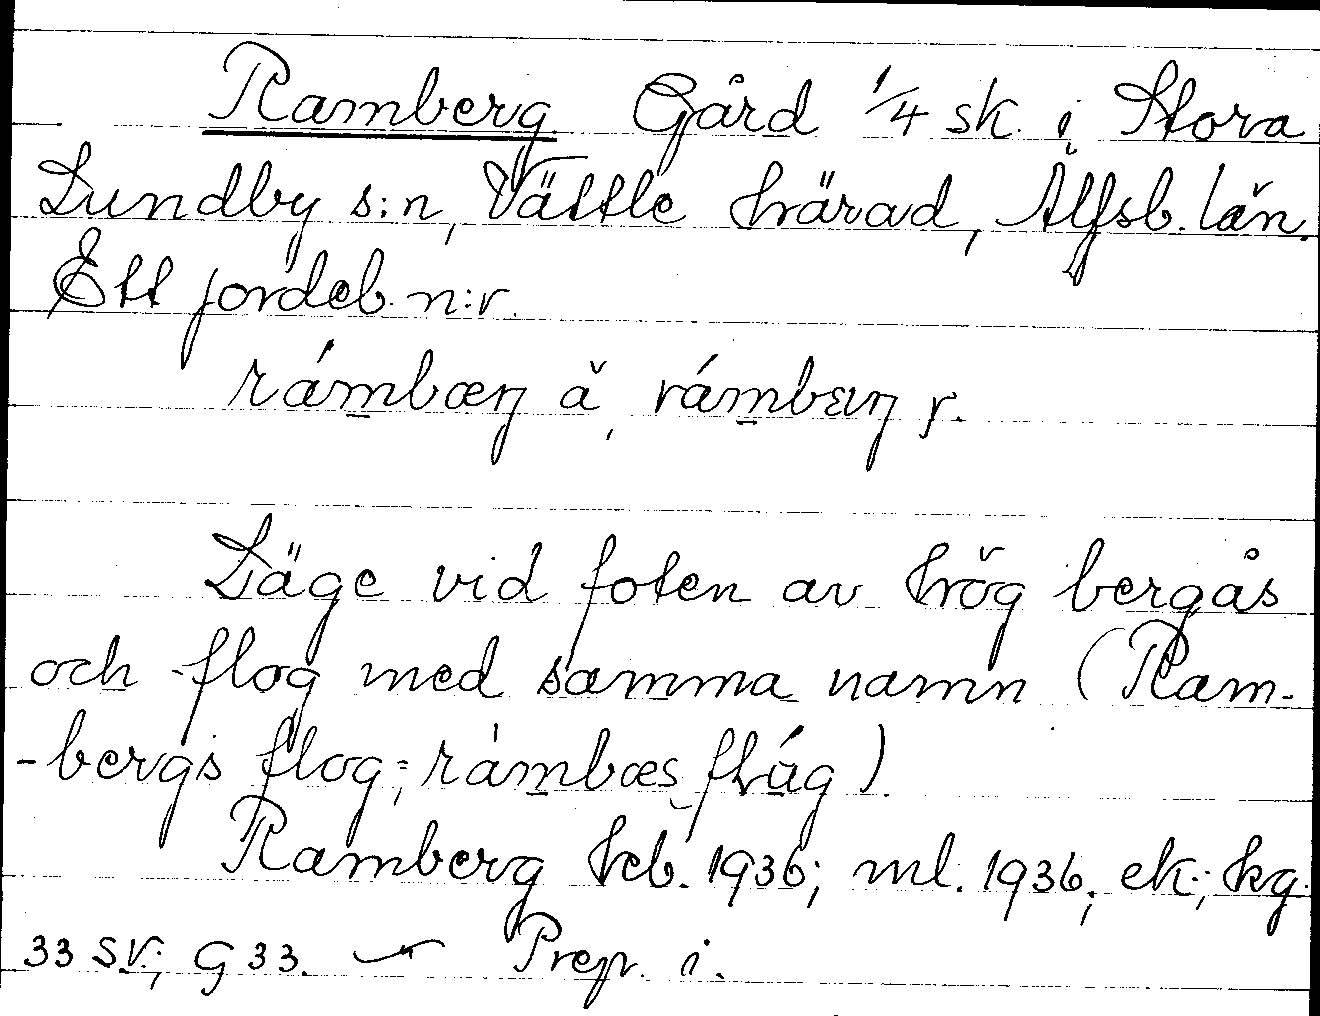 Ramberg Gård 1/4 sk. i Stora
Lundby s:n, Vättle härad, Älfsb. län.
Ett jordeb. n:r.
rámbæŋ ä, rámbeŋ y.
Läge vid foten av hög bergås
och flog med samma namn (Ram-
-bergs flog; ràmbæs flúg).
Ramberg hcb. 1936; ml. 1936; ek.; kg.
33 SV.; G 33. — Prep. i.